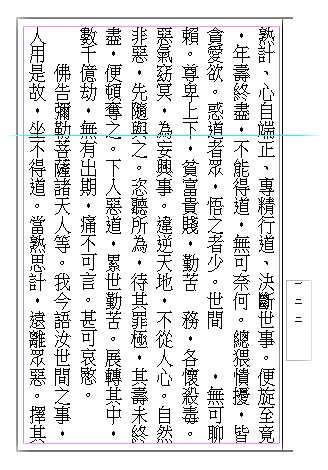 熟計、心自端正、專精行道、決斷世事。便旋至竟
・年壽終盡・不能得道・無可奈何。總猥憒擾・皆
貪愛欲。惑道者眾・悟之者少。世間　　・無可聊
賴。尊卑上下・貧富貴賤・勤苦　務・各懷殺毒。
惡氣窈冥・為妄興事。違逆天地・不從人心。自然
非惡・先隨與之。恣聽所為・待其罪極・其壽未終
盡・便頓奪之。下入惡道・累世勤苦。展轉其中・
數千億劫・無有出期・痛不可言。甚可哀愍。
　佛告彌勒菩薩諸天人等。我今語汝世間之事・
人用是故・坐不得道。當熟思計・遠離眾惡。擇其
一二二